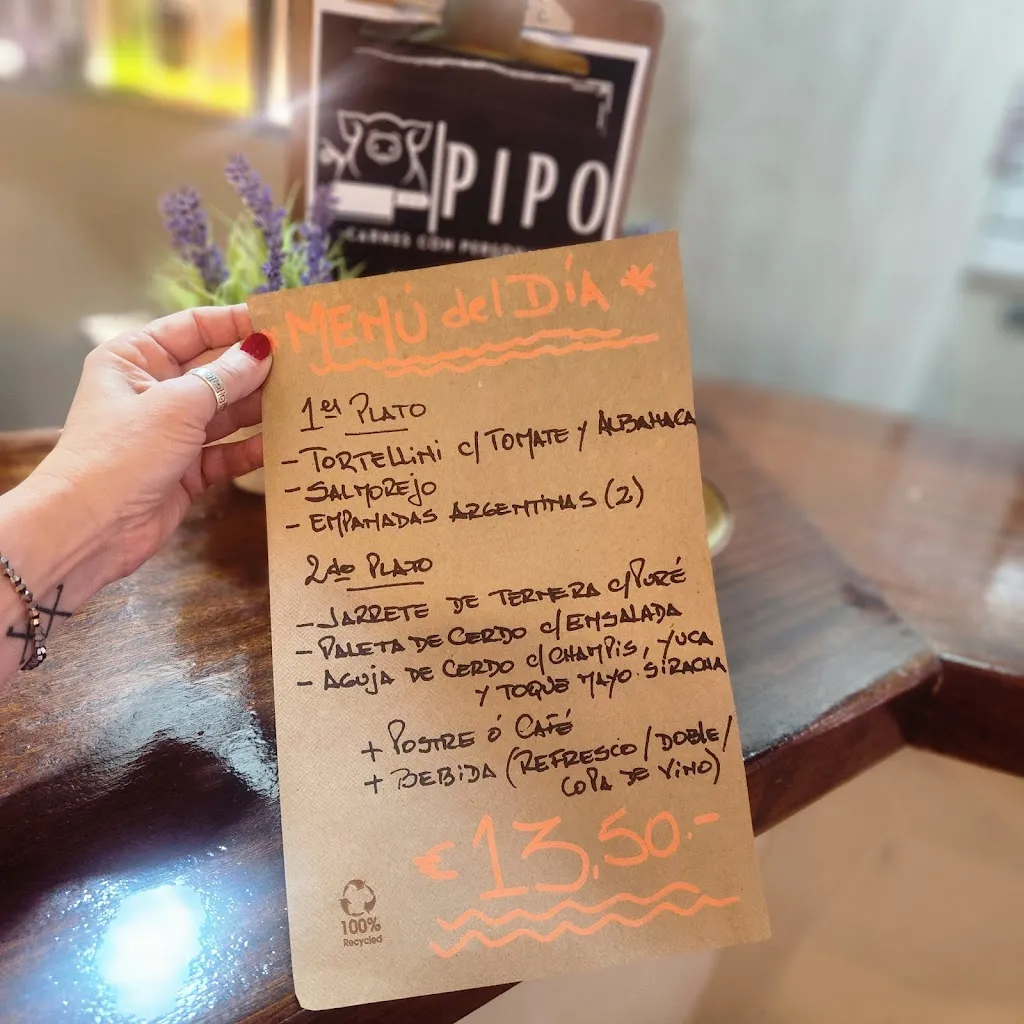 PIPO
CARNES CON
MENÚ del DÍA *
1er PLATO
- TORTELLINI c/ TOMATE y ALBAHACA
- SALMOREJO
- EMPANADAS ARGENTINAS (2)
2do PLATO
- JARRETE DE TERNERA c/PURÉ
- PALETA DE CERDO c/ENSALADA
- AGUJA DE CERDO c/CHAMPIS, YUCA
Y TOQUE MAYO SIRACHA
+ POSTRE Ó CAFÉ
+ BEBIDA (REFRESCO/DOBLE/
COPA DE VINO)
€13,50.-
100%
Recycled